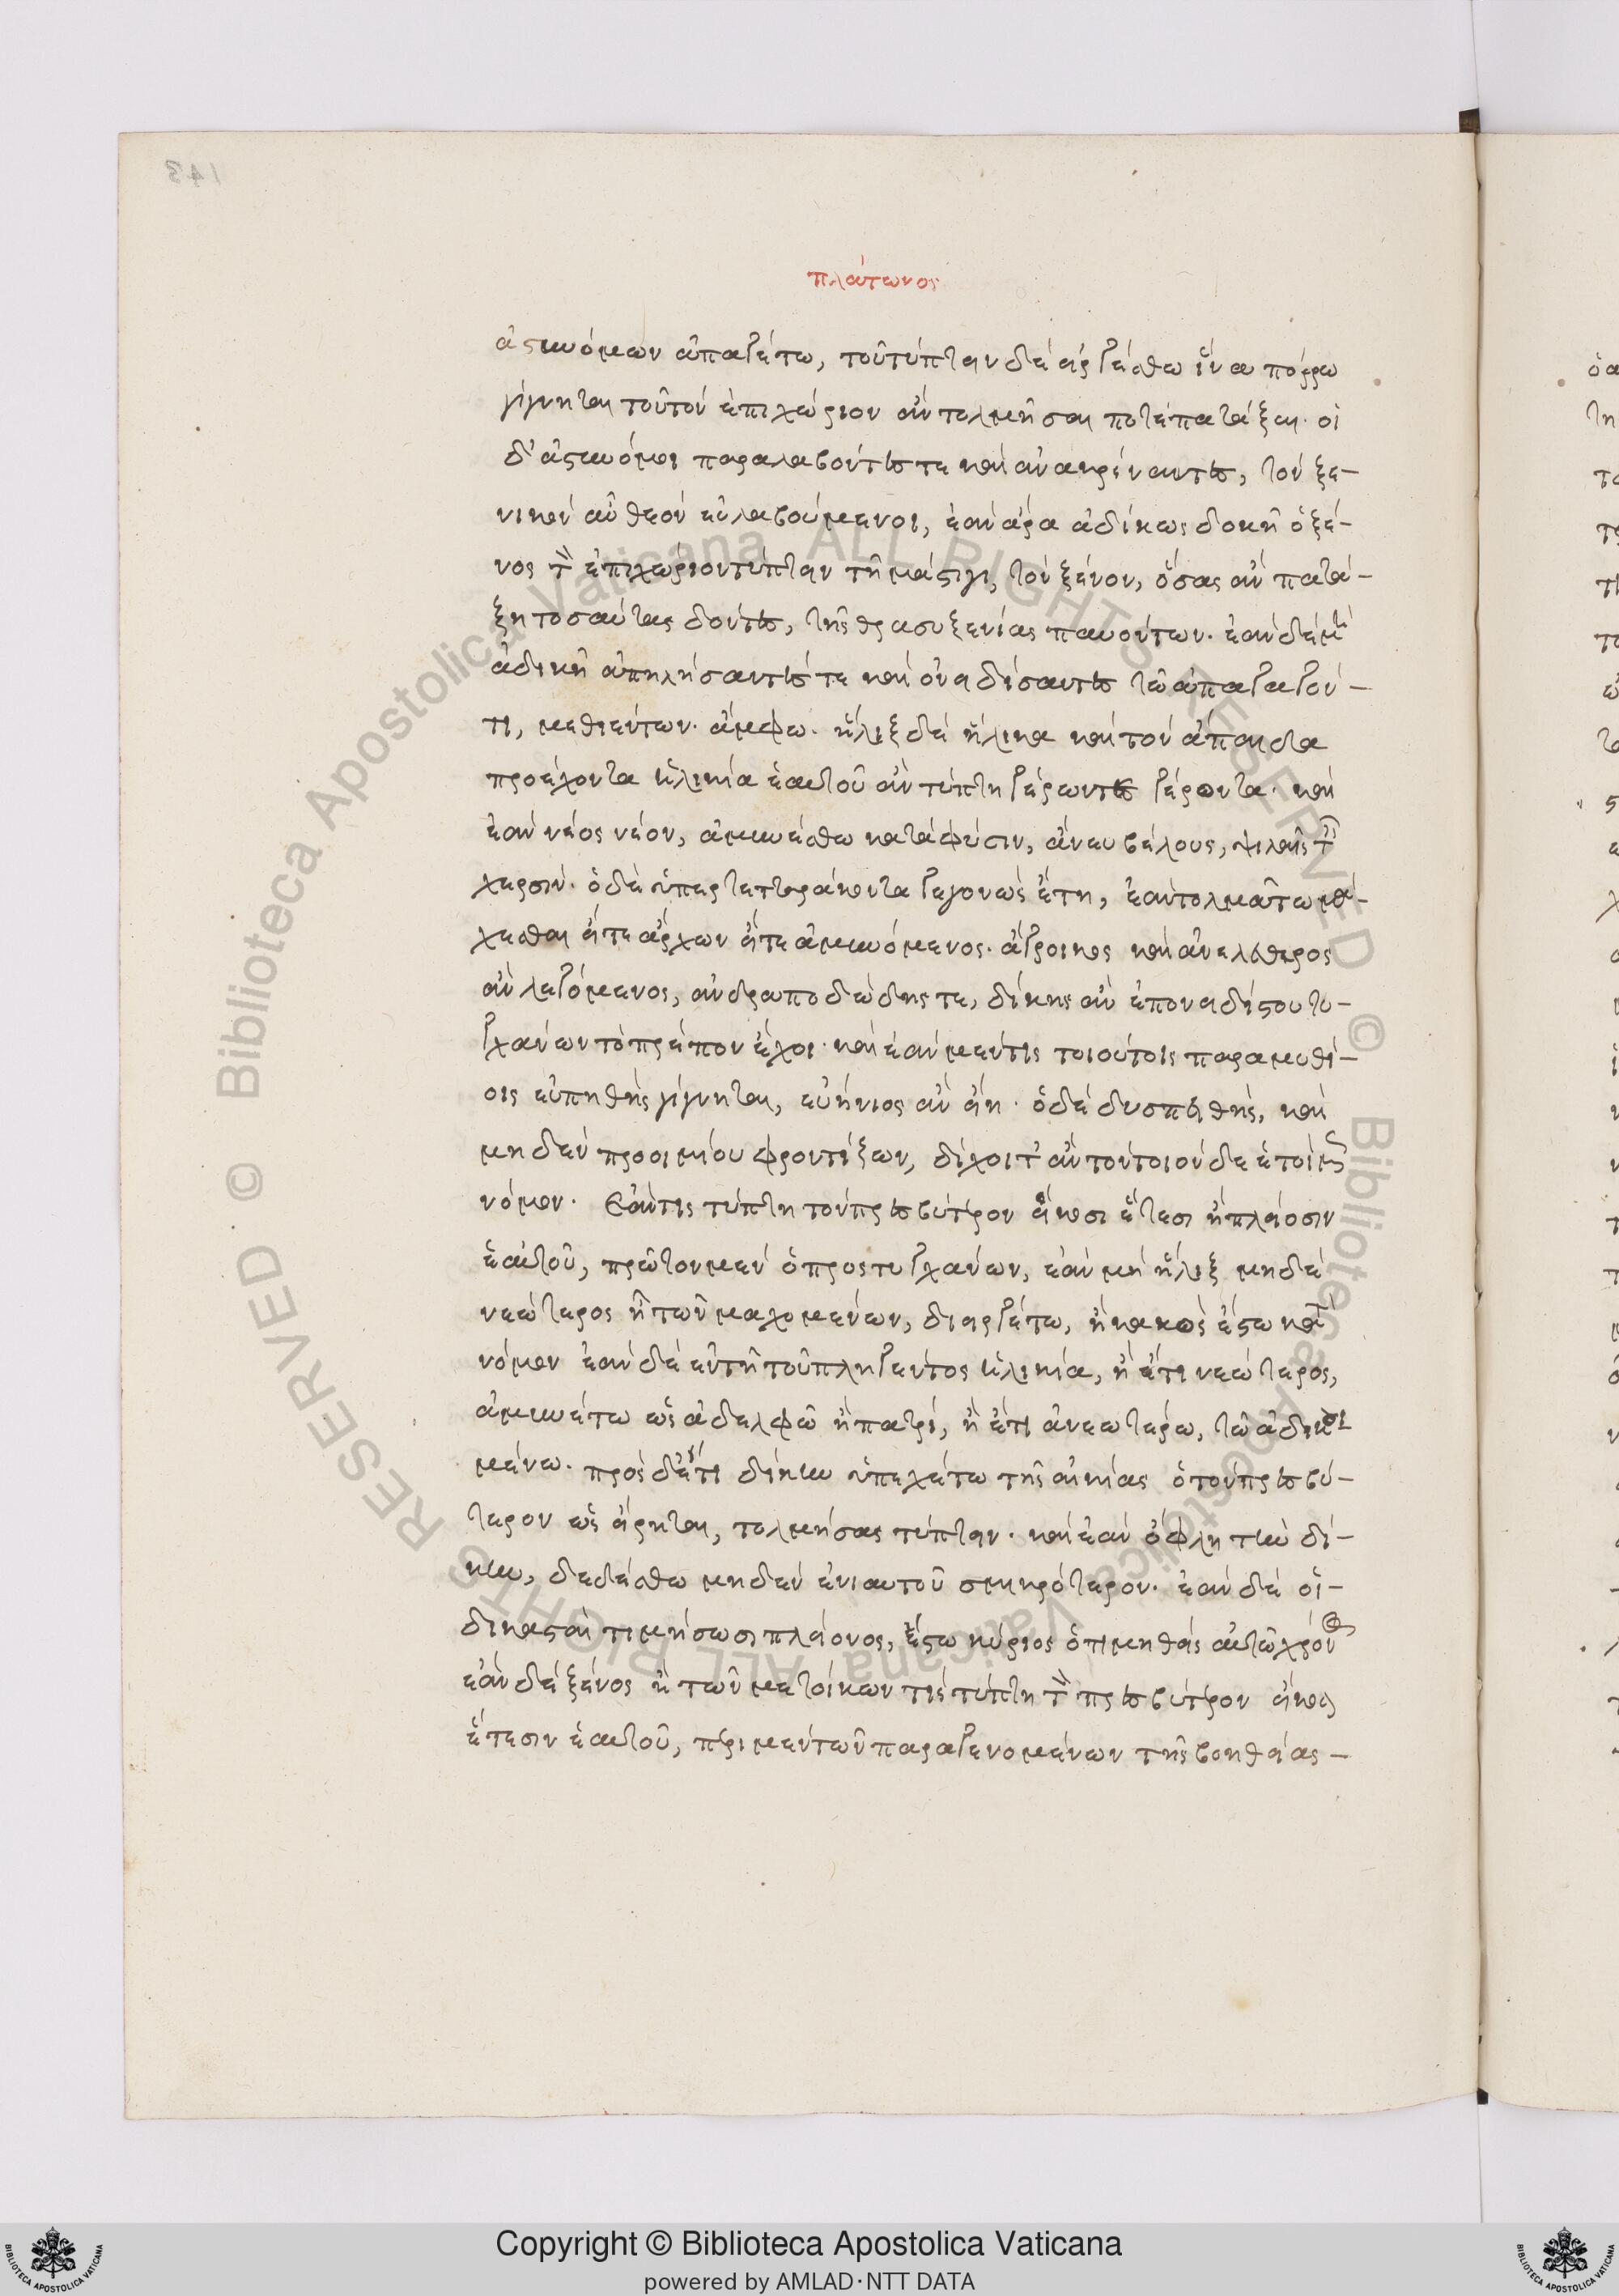 πλάτωνος
ἀστυνόμων ἀπαγέτω, τοῦ τύπτειν δὲ εἰργέσθω ἵνα πόρρω
γίγνηται τοῦ τὸν ἐπιχώριον ἂν τολμῆσαι ποτὲ πατάξαι. οἱ
δ' ἀστυνόμοι παραλαβόντες τε καὶ ἀνακρίναντες, τὸν ξε-
νικὸν αὖ θεὸν εὐλαβούμενοι, ἐὰν ἄρα ἀδίκως δοκῇ ὁ ξέ-
νος τὸν ἐπιχώριον τύπτειν τῇ μάστιγι, τὸν ξένον, ὅσας ἂν πατά-
ξῃ τοσαύτας δόντες, τῆς θρασυξενίας παυόντων. ἐὰν δὲ μὴ
ἀδικῇ ἀπειλήσαντές τε καὶ ὀνειδίσαντες τῷ ἀπαγαγόν-
τι, μεθιέντων. ἄμφω. ἧλιξ δὲ ἥλικα καὶ τὸν ἄπαιδα
προέχοντα ἡλικίᾳ ἑαυτοῦ ἂν τύπτῃ γέρωντες γέροντα. καὶ
ἐὰν νέος νέον, ἀμυνέσθω κατὰ φύσιν, ἄνευ βέλους, ψιλαῖς ταῖς
χερσίν. ὁ δὲ ὑπὲρ τετταράκοντα γεγονὼς ἔτη, ἐὰν τολμᾷ τῳ μά-
χεσθαι εἴτε ἄρχων εἴτε ἀμυνόμενος. ἄγροικος καὶ ἀνελεύθερος
ἂν λεγόμενος, ἀνδραποδώδης τε, δίκης ἂν ἐπονειδίστου τυ-
γχάνων τὸ πρέπον ἔχοι. καὶ ἐὰν μέν τις τοιούτοις παραμυθί-
οις εὐπειθὴς γίγνηται, εὐήνιος ἂν εἴη. ὁ δὲ δυσπειθής, καὶ
μηδὲν προοιμίου φροντίζων, δέχοιτ' ἂν τὸν τοιόνδε ἑτοίμως
νόμον. Ἐάν τις τύπτῃ τὸν πρεσβύτερον εἴκοσι ἔτεσι ἢ πλείοσιν
ἑαυτοῦ, πρῶτον μὲν ὁ προστυγχάνων, ἐὰν μὴ ἧλιξ μηδὲ
νεώτερος ᾖ τῶν μαχομένων, διειργέτω, ἢ κακὸς ἔστω κατὰ
νόμον ἐὰν δὲ ἐν τῇ τοῦ πληγέντος ἡλικίᾳ, ἢ ἔτι νεώτερος,
ἀμυνέτω ὡς ἀδελφῷ ἢ πατρί, ἢ ἔτι ἀνεωτέρω, τῷ ἀδικου-
μένω. πρὸς δ' ἔτι δίκην ὑπεχέτω τῆς αἰκίας ὁ τὸν πρεσβύ-
τερον ὡς εἴρηται, τολμήσας τύπτειν. καὶ ἐὰν ὄφλῃ τὴν δί-
κην, δεδέσθω μηδὲν ἐνιαυτοῦ σμικρότερον. ἐὰν δὲ οἱ
δικασταὶ τιμήσωσι πλείονος, ἔστω κύριος ὁ τιμηθεὶς αὐτῷ χρόνος
ἐὰν δὲ ξένος ἢ τῶν μετοίκων τις τύπτῃ τὸν πρεσβύτερον εἴκοσι
ἔτεσιν ἑαυτοῦ, περὶ μὲν τῶν παραγενομένων τῆς βοηθείας
Copyright © Biblioteca Apostolica Vaticana
powered by AMLAD·NTT DATA